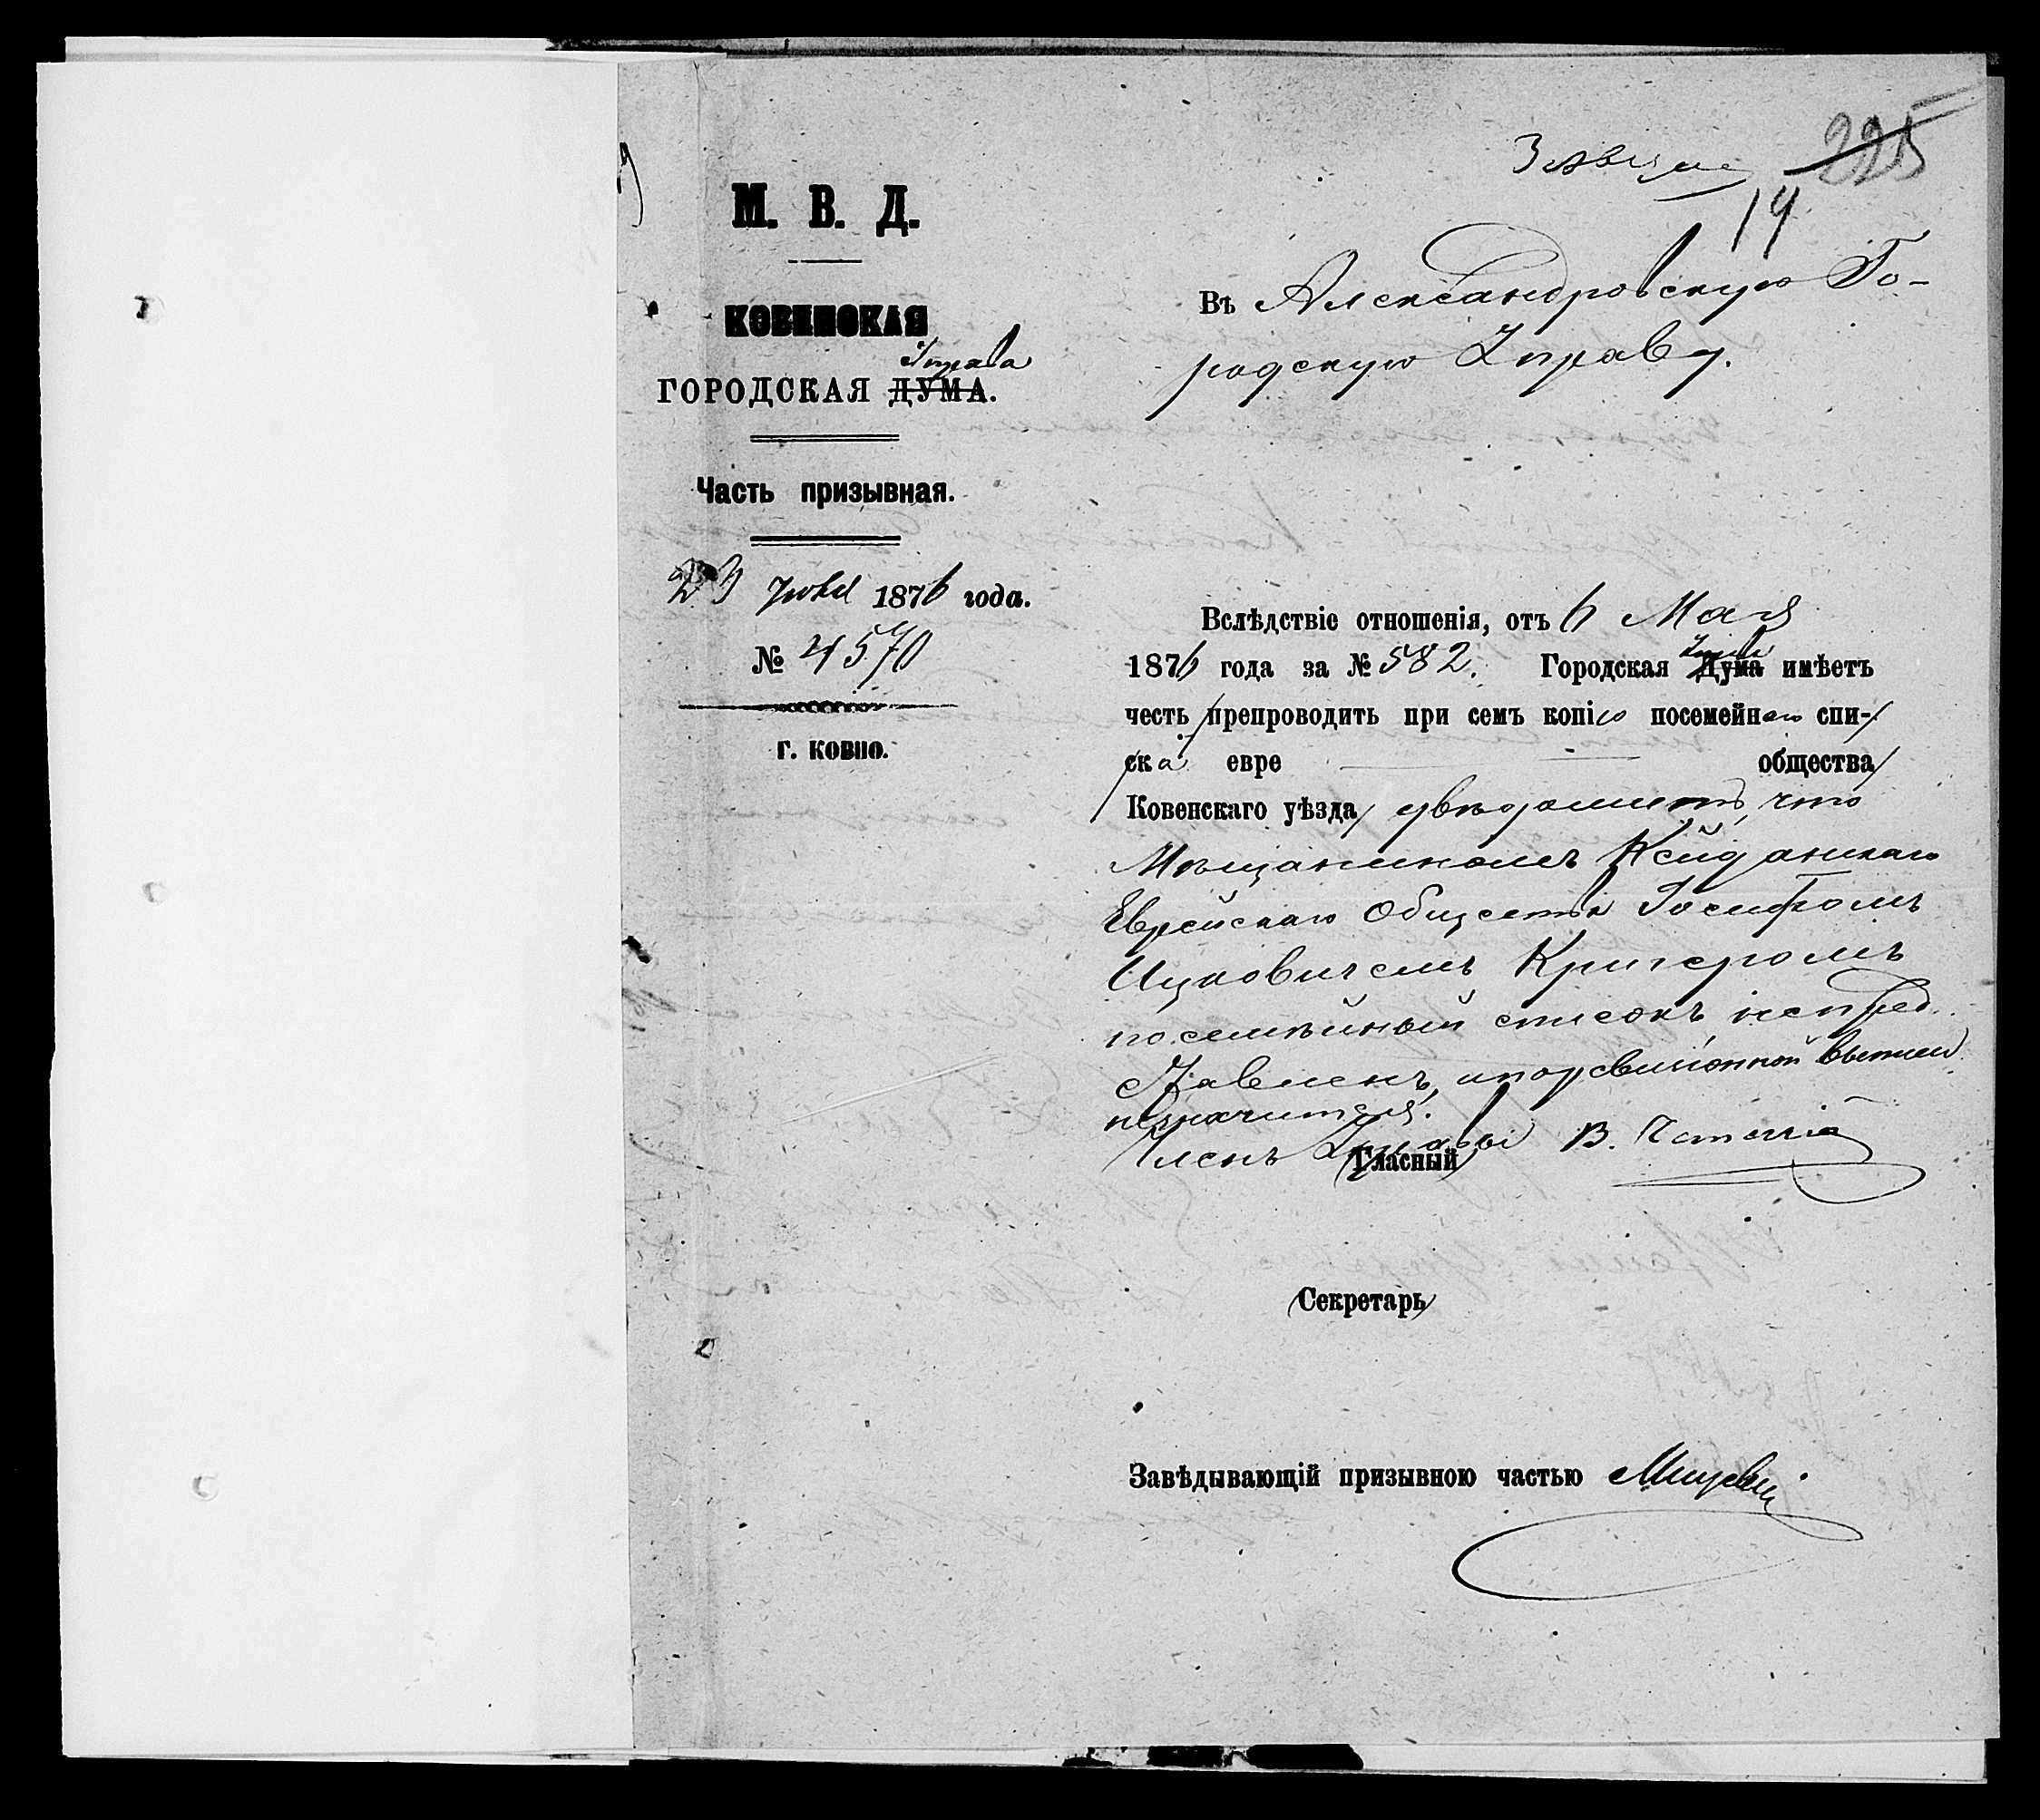 225
З Августа
14
М. В. Д.
КОВЕНСКАЯ
Управа
ГОРОДСКАЯ ДУМА.
Часть призывная.
23 Юля 1876 года.
№ 4570
г. КОВНО.
Въ Александровскую Го-
родскую Управу.
Вслѣдствіе отношенія, отъ 6 Мая
1876 года за № 582. Городская Дума Управа имѣетъ
честь препроводить при семъ копію посемейнаго спи-
ска евре общества
Ковенскаго уѣзда увѣдомить, что
Мѣщаниномъ Кейданскаго
Еврейскаго Общества Іосифомъ
Ицковичемъ Кригеромъ
посемѣйный списокъ непред-
ставленъ, и по ревизіонной
незначится.
Членъ Управы В.
Гласный
Секретарь
Завѣдывающій призывною частью